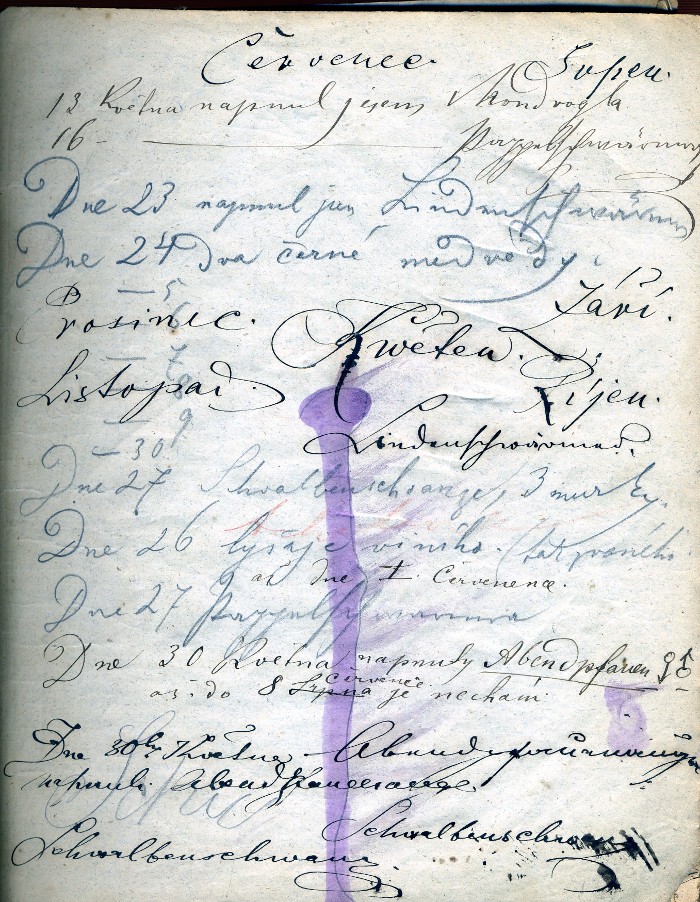 Červenec. Srpen.
13 Května napnul jsem
16 - Pappelschwärmer
Dne 23 napnul jsem Lindenschwärmer
Dne 24 dva černé medvědy.
— 5
6
Prosinec. Květen. Září.
— 7
8
Listopad. Říjen.
— 9
— 30 Lindenschwärmer.
Dne 27 Schwalbenschwanz, 3
Dne 26 lyšaje viního.
až dne 1. Červenence.
Dne 27 Pappelschwärmer
Dne 30 Května napnuly Abendpfauen
Červenec
až do 8 Srpna je nechám
Dne 30ho Května Abendpfauenauge
napnul. Abendpfauenauge.
Schwalbenschwanz
Schwalbenschwanz